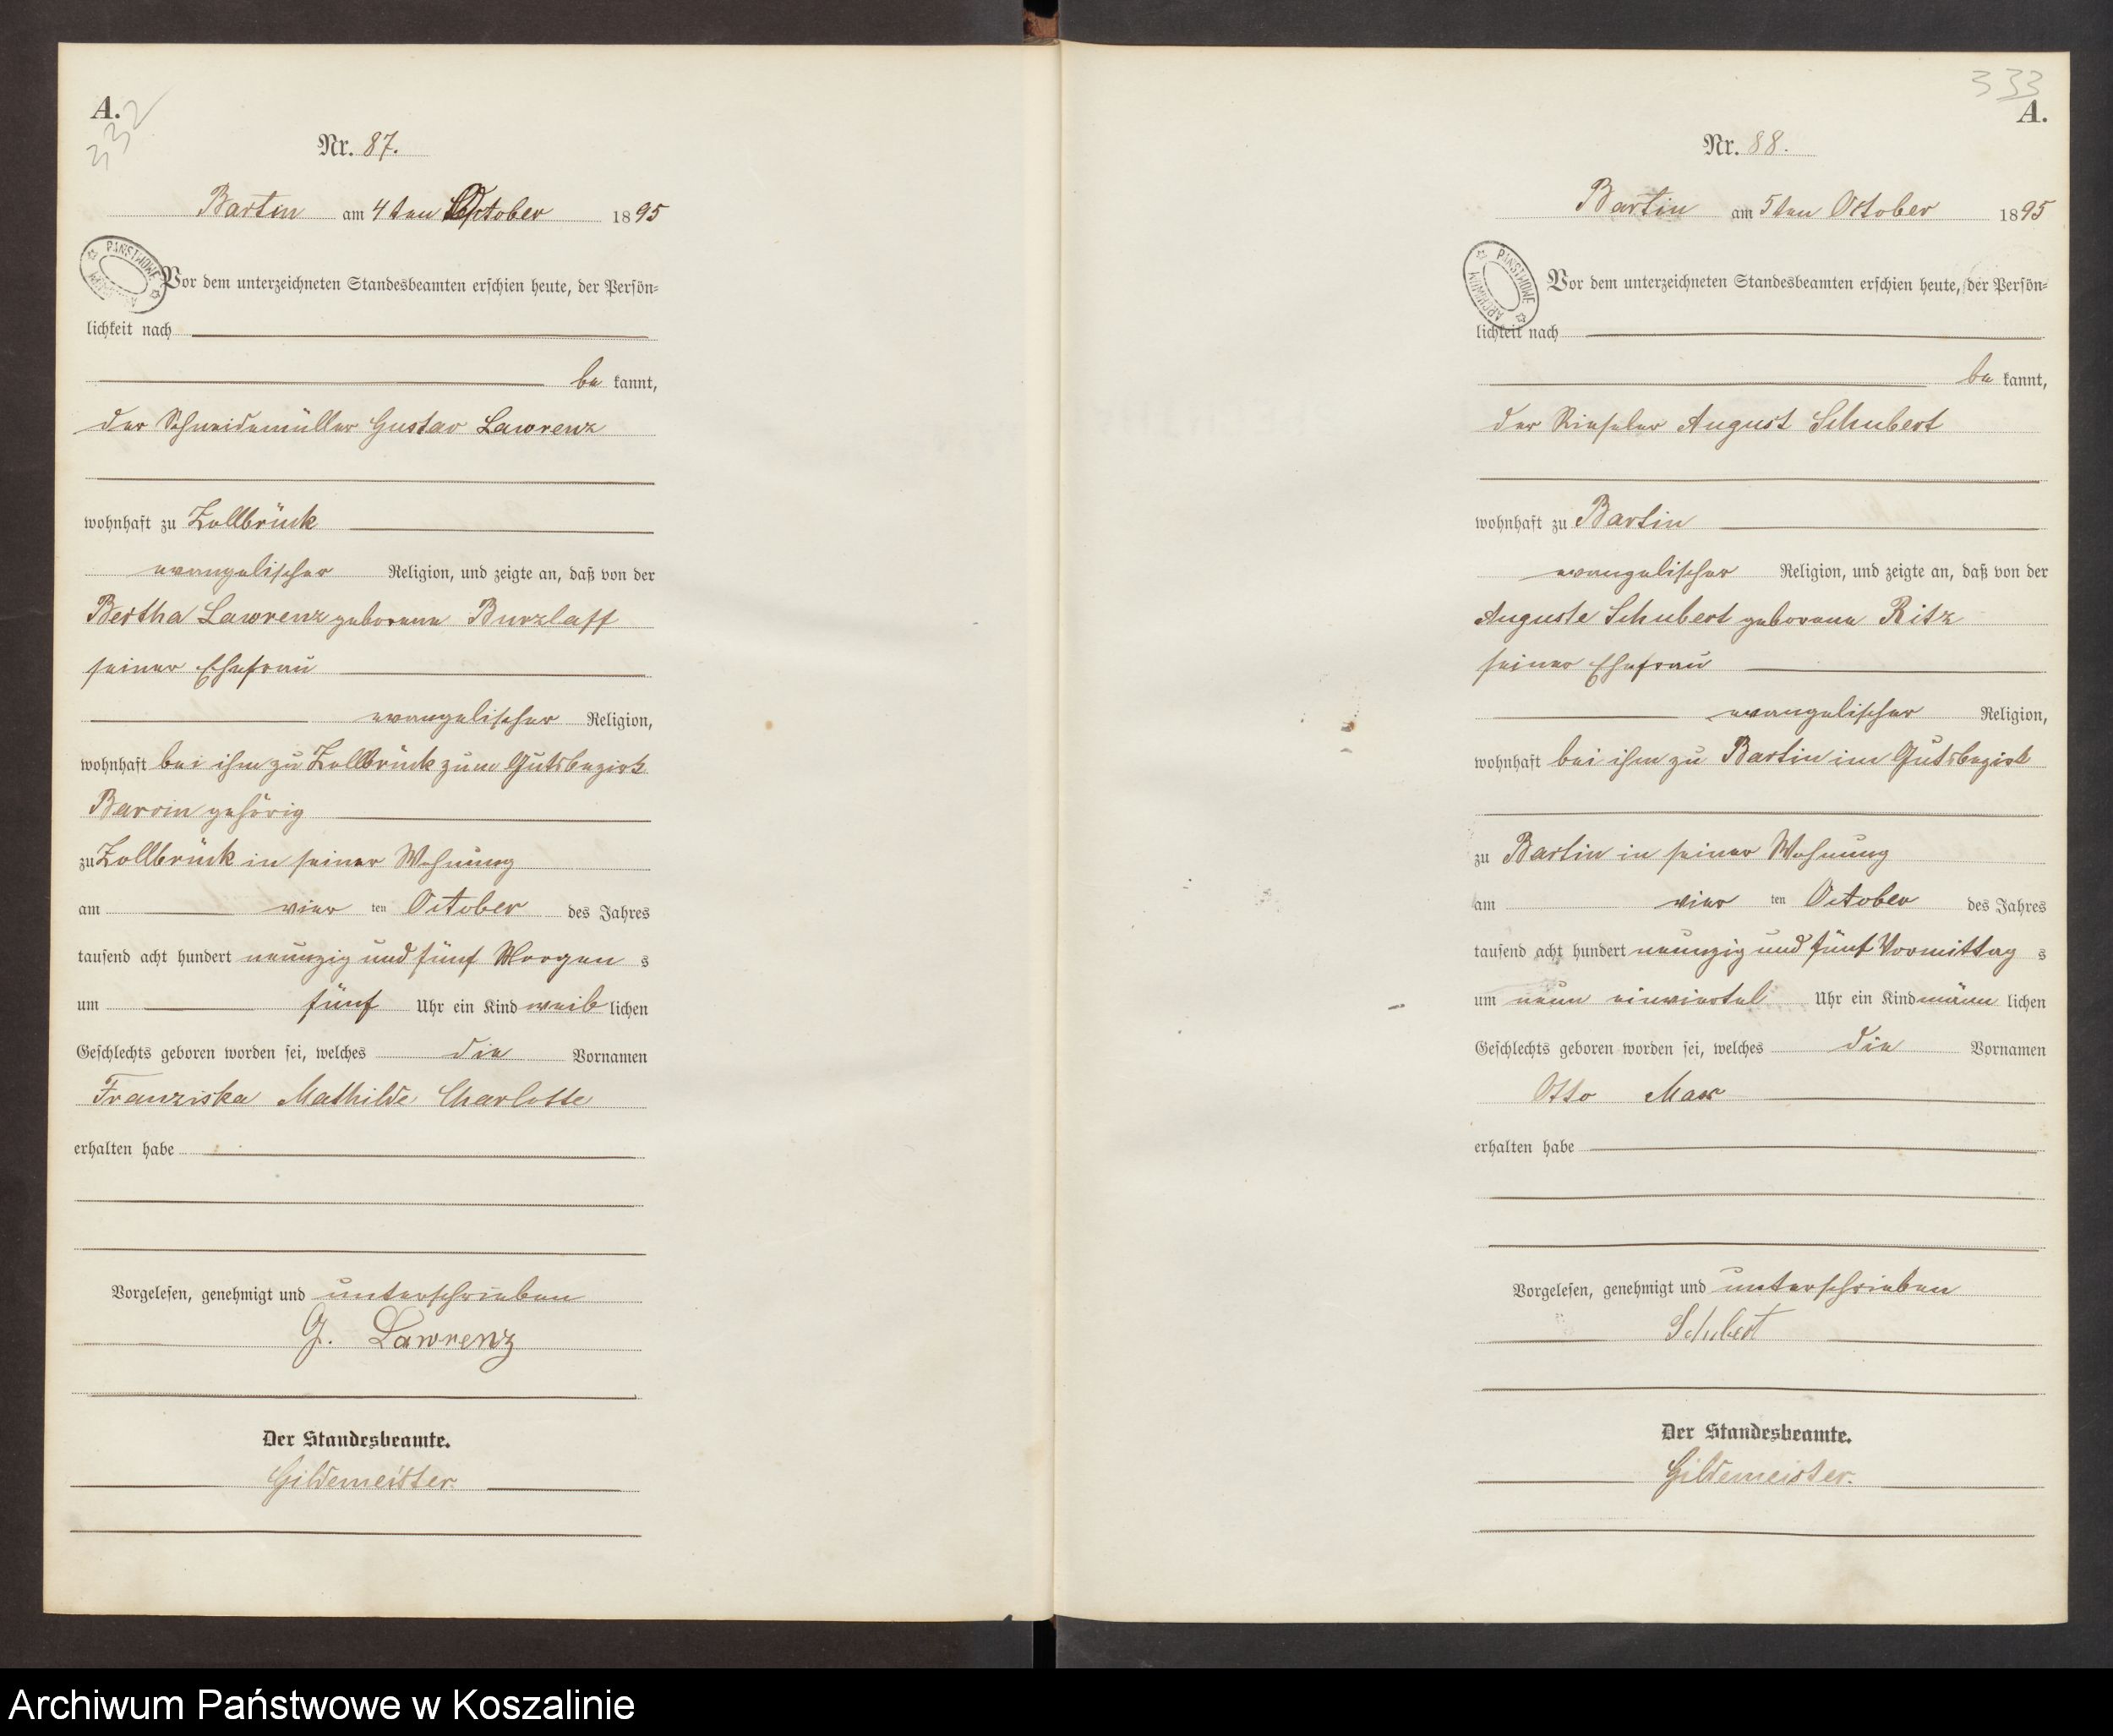 A.
332
Nr. 87.
Bartin am 4ten October 1895
PAŃSTWOWE ARCHIWUM
Vor dem unterzeichneten Standesbeamten erschien heute, der Persön-
lichkeit nach
be kannt,
der Schneidemüller Gustav Lawrenz
wohnhaft zu Zollbrück
evangelischer Religion, und zeigte an, daß von der
Bertha Lawrenz geborene Burzlaff
seiner Ehefrau
evangelischer Religion,
wohnhaft bei ihm zu Zollbrück zum Gutsbezirk
Barvin gehörig
zu Zollbrück in seiner Wohnung
am vier ten October des Jahres
tausend acht hundert neunzig und fünf Morgen s
um fünf Uhr ein Kind weib lichen
Geschlechts geboren worden sei, welches die Vornamen
Franziska Mathilde Charlotte
erhalten habe
Vorgelesen, genehmigt und unterschrieben
G. Lawrenz
Der Standesbeamte.
Gildemeister.
333
A.
Nr. 88.
Bartin am 5ten October 1895
PAŃSTWOWE ARCHIWUM
Vor dem unterzeichneten Standesbeamten erschien heute, der Persön-
lichkeit nach
be kannt,
der Rieseler August Schubert
wohnhaft zu Bartin
evangelischer Religion, und zeigte an, daß von der
Auguste Schubert geborene Ritz
seiner Ehefrau
evangelischer Religion,
wohnhaft bei ihm zu Bartin im Gutsbezirk
zu Bartin in seiner Wohnung
am vier ten October des Jahres
tausend acht hundert neunzig und fünf Vormittag s
um neun einviertel Uhr ein Kind männ lichen
Geschlechts geboren worden sei, welches die Vornamen
Otto Max
erhalten habe
Vorgelesen, genehmigt und unterschrieben
Schubert
Der Standesbeamte.
Gildemeister.
Archiwum Państwowe w Koszalinie